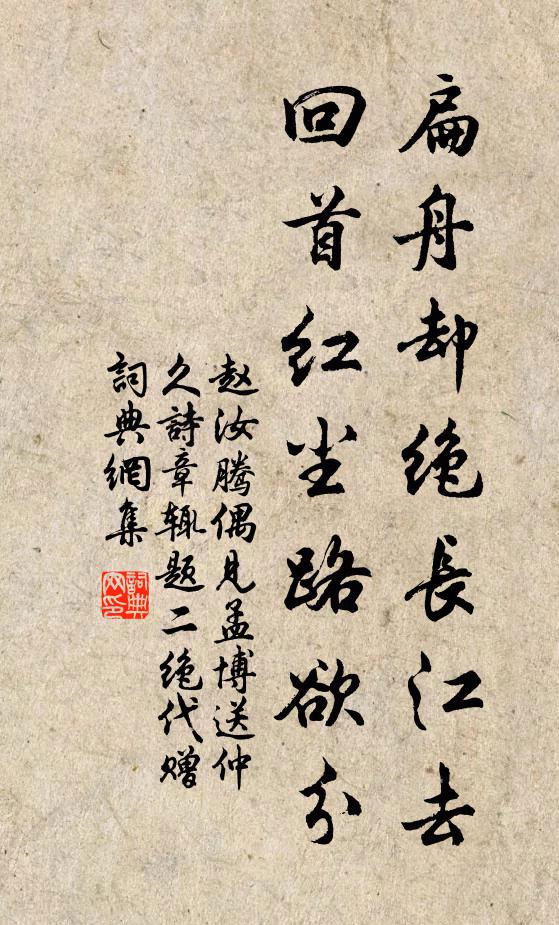 扁舟却绝長江去
回首红尘路欲分
赵汝腾偶见孟博送仲
久詩章辄题二绝代赠
詞典網集
詞典
网印